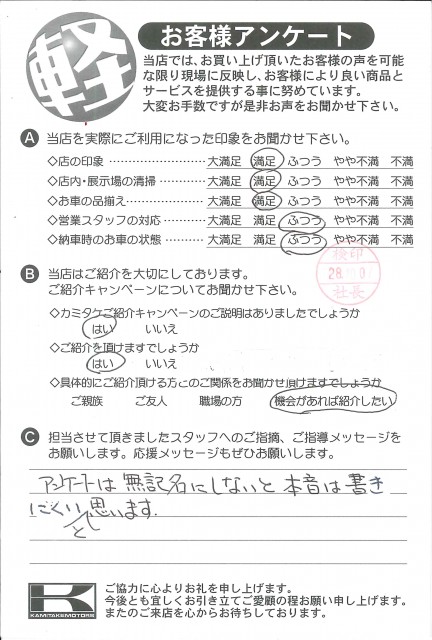 軽
お客様アンケート
当店では、お買い上げ頂いたお客様の声を可能
な限り現場に反映し、お客様により良い商品と
サービスを提供する事に努めています。
大変お手数ですが是非お声をお聞かせ下さい。
A 当店を実際にご利用になった印象をお聞かせ下さい。
◇店の印象 ‥‥‥‥‥‥‥ 大満足 満足 ふつう やや不満 不満
◇店内・展示場の清掃 ‥‥‥ 大満足 満足 ふつう やや不満 不満
◇お車の品揃え‥‥‥‥‥‥ 大満足 満足 ふつう やや不満 不満
◇営業スタッフの対応 ‥‥‥ 大満足 満足 ふつう やや不満 不満
◇納車時のお車の状態 ‥‥‥ 大満足 満足 ふつう やや不満 不満
検印
28.
社長
B 当店はご紹介を大切にしております。
ご紹介キャンペーンについてお聞かせ下さい。
◇カミタケご紹介キャンペーンのご説明はありましたでしょうか
はい いいえ
◇ご紹介を頂けますでしょうか
はい いいえ
◇具体的にご紹介頂ける方とのご関係をお聞かせ頂けますでしょうか
ご親族 ご友人 職場の方 機会があれば紹介したい
C 担当させて頂きましたスタッフへのご指摘、ご指導メッセージを
お願いします。応援メッセージもぜひお願いします。
アンケートは無記名にしないと本音は書き
にくいと思います.
K
KAMITAKEMOTORS
ご協力に心よりお礼を申し上げます。
今後とも宜しくお引き立てご愛顧の程お願い申し上げます。
またのご来店を心からお待ちしております。